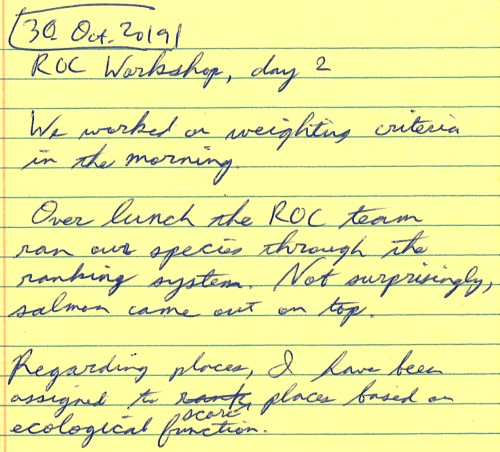 30 Oct. 2019
ROC Workshop, day 2
We worked on weighting criteria
in the morning.
Over lunch the ROC team
ran our species through the
ranking system. Not surprisingly,
salmon came out on top.
Regarding places, I have been
assigned to rank score places based on
ecological function.